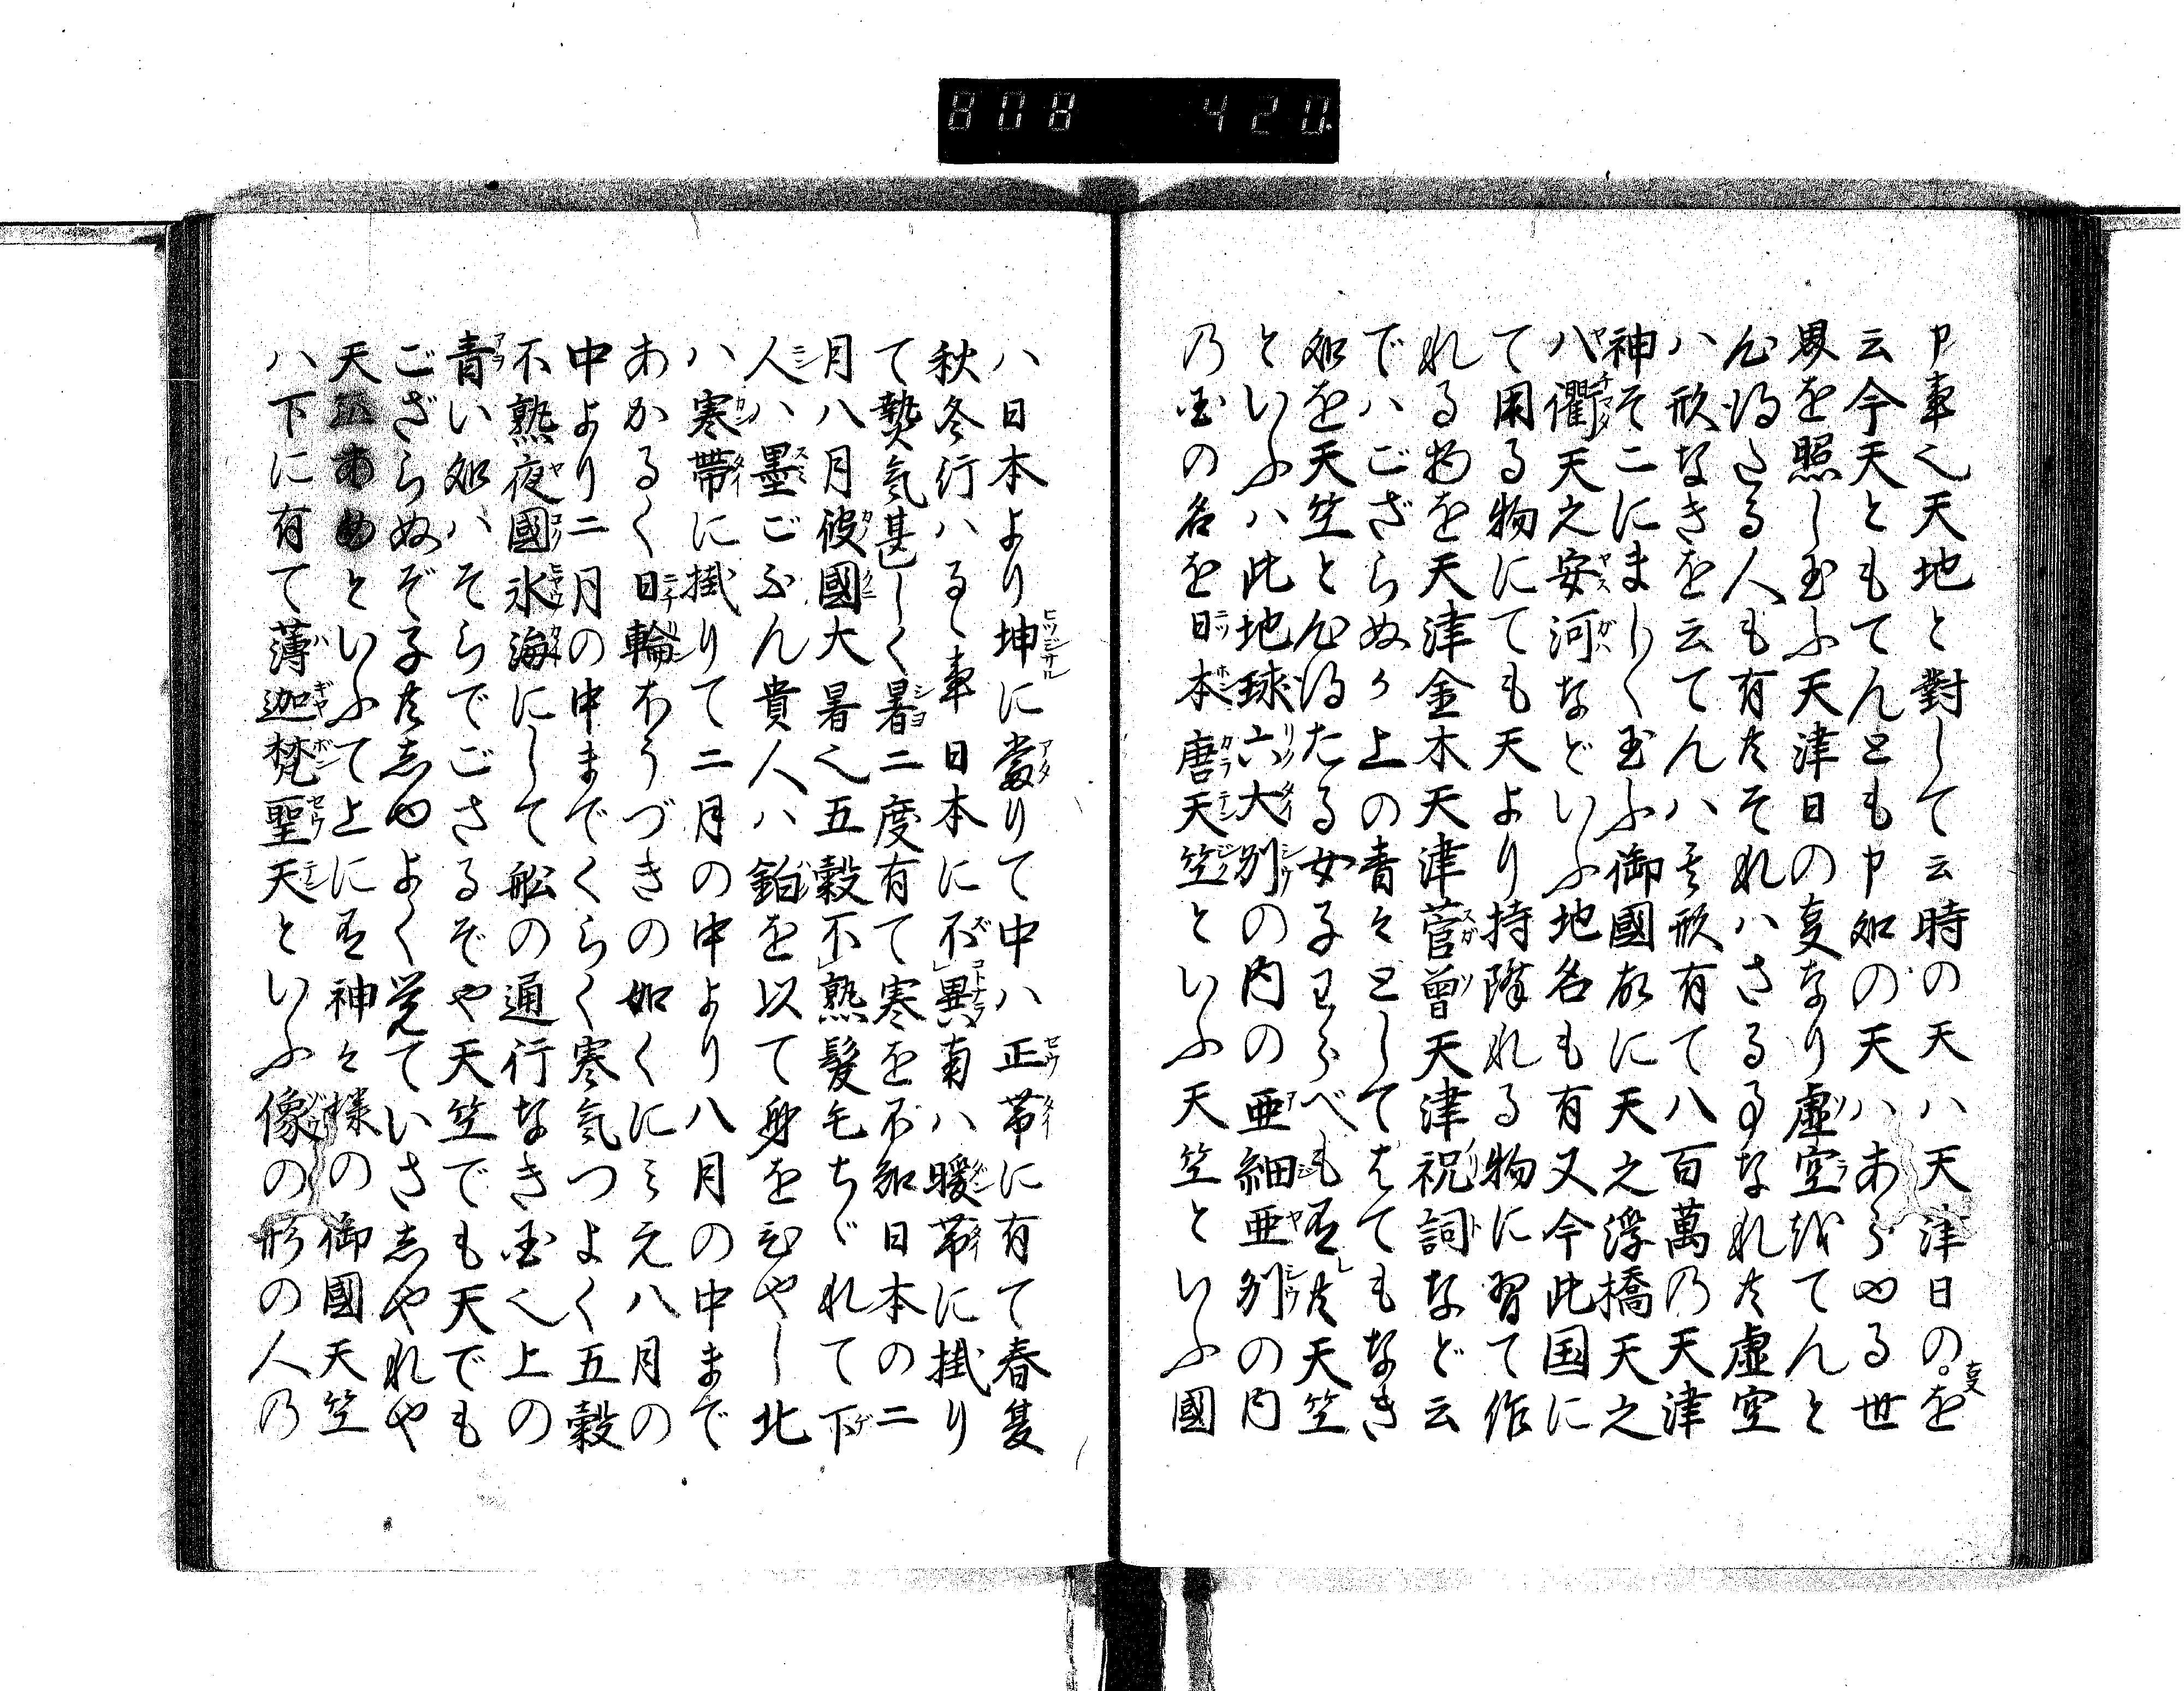 808 420
申事也天地と對して云時の天ハ天津日の。を
云今天ともてんとも申如の天ハあらゆる世
界を照し玉ふ天津日の事なり虚空抔てんと
心得たる人も有共それハさる事なれ共虚空
ハ形なきを云てんハ其形有て八百萬乃天津
神そこにまし〳〵玉ふ御國故に天之浮橋天之
八衢天之安河などいふ地名も有又今此国に
て用る物にても天より持降れる物に習て作
れる物を天津金木天津菅曾天津祝詞など云
でハござらぬか上の青々としてはてもなき
処を天竺と心得たる女子わらべも有共天竺
といふハ此地球六大別の内の亜細亜別の内
乃国の名を日本唐天竺といふ天竺といふ國
ハ日本より坤に當りて中ハ正帯に有て春夏
秋冬行ハるゝ事日本に不異南ハ暖帯に掛り
て熱気甚しく暑二度有て寒を不知日本の二
月八月彼國大暑也五穀不熟髪毛ちゞれて下
人ハ墨ごぶん貴人ハ鉑を以て身をひやし北
ハ寒帯に掛りて二月の中より八月の中まで
あかるく日輪おうづきの如くにミえ八月の
中より二月の中までくらく寒気つよく五穀
不熟夜國氷海にして舩の通行なき国也上の
青い処ハそらでござるぞや天竺でも天でも
ござらぬぞ子共衆もよく覚ていさしやれや
天といふて上に有神々様の御國天竺
ハ下に有て薄迦梵聖天といふ像の形の人乃